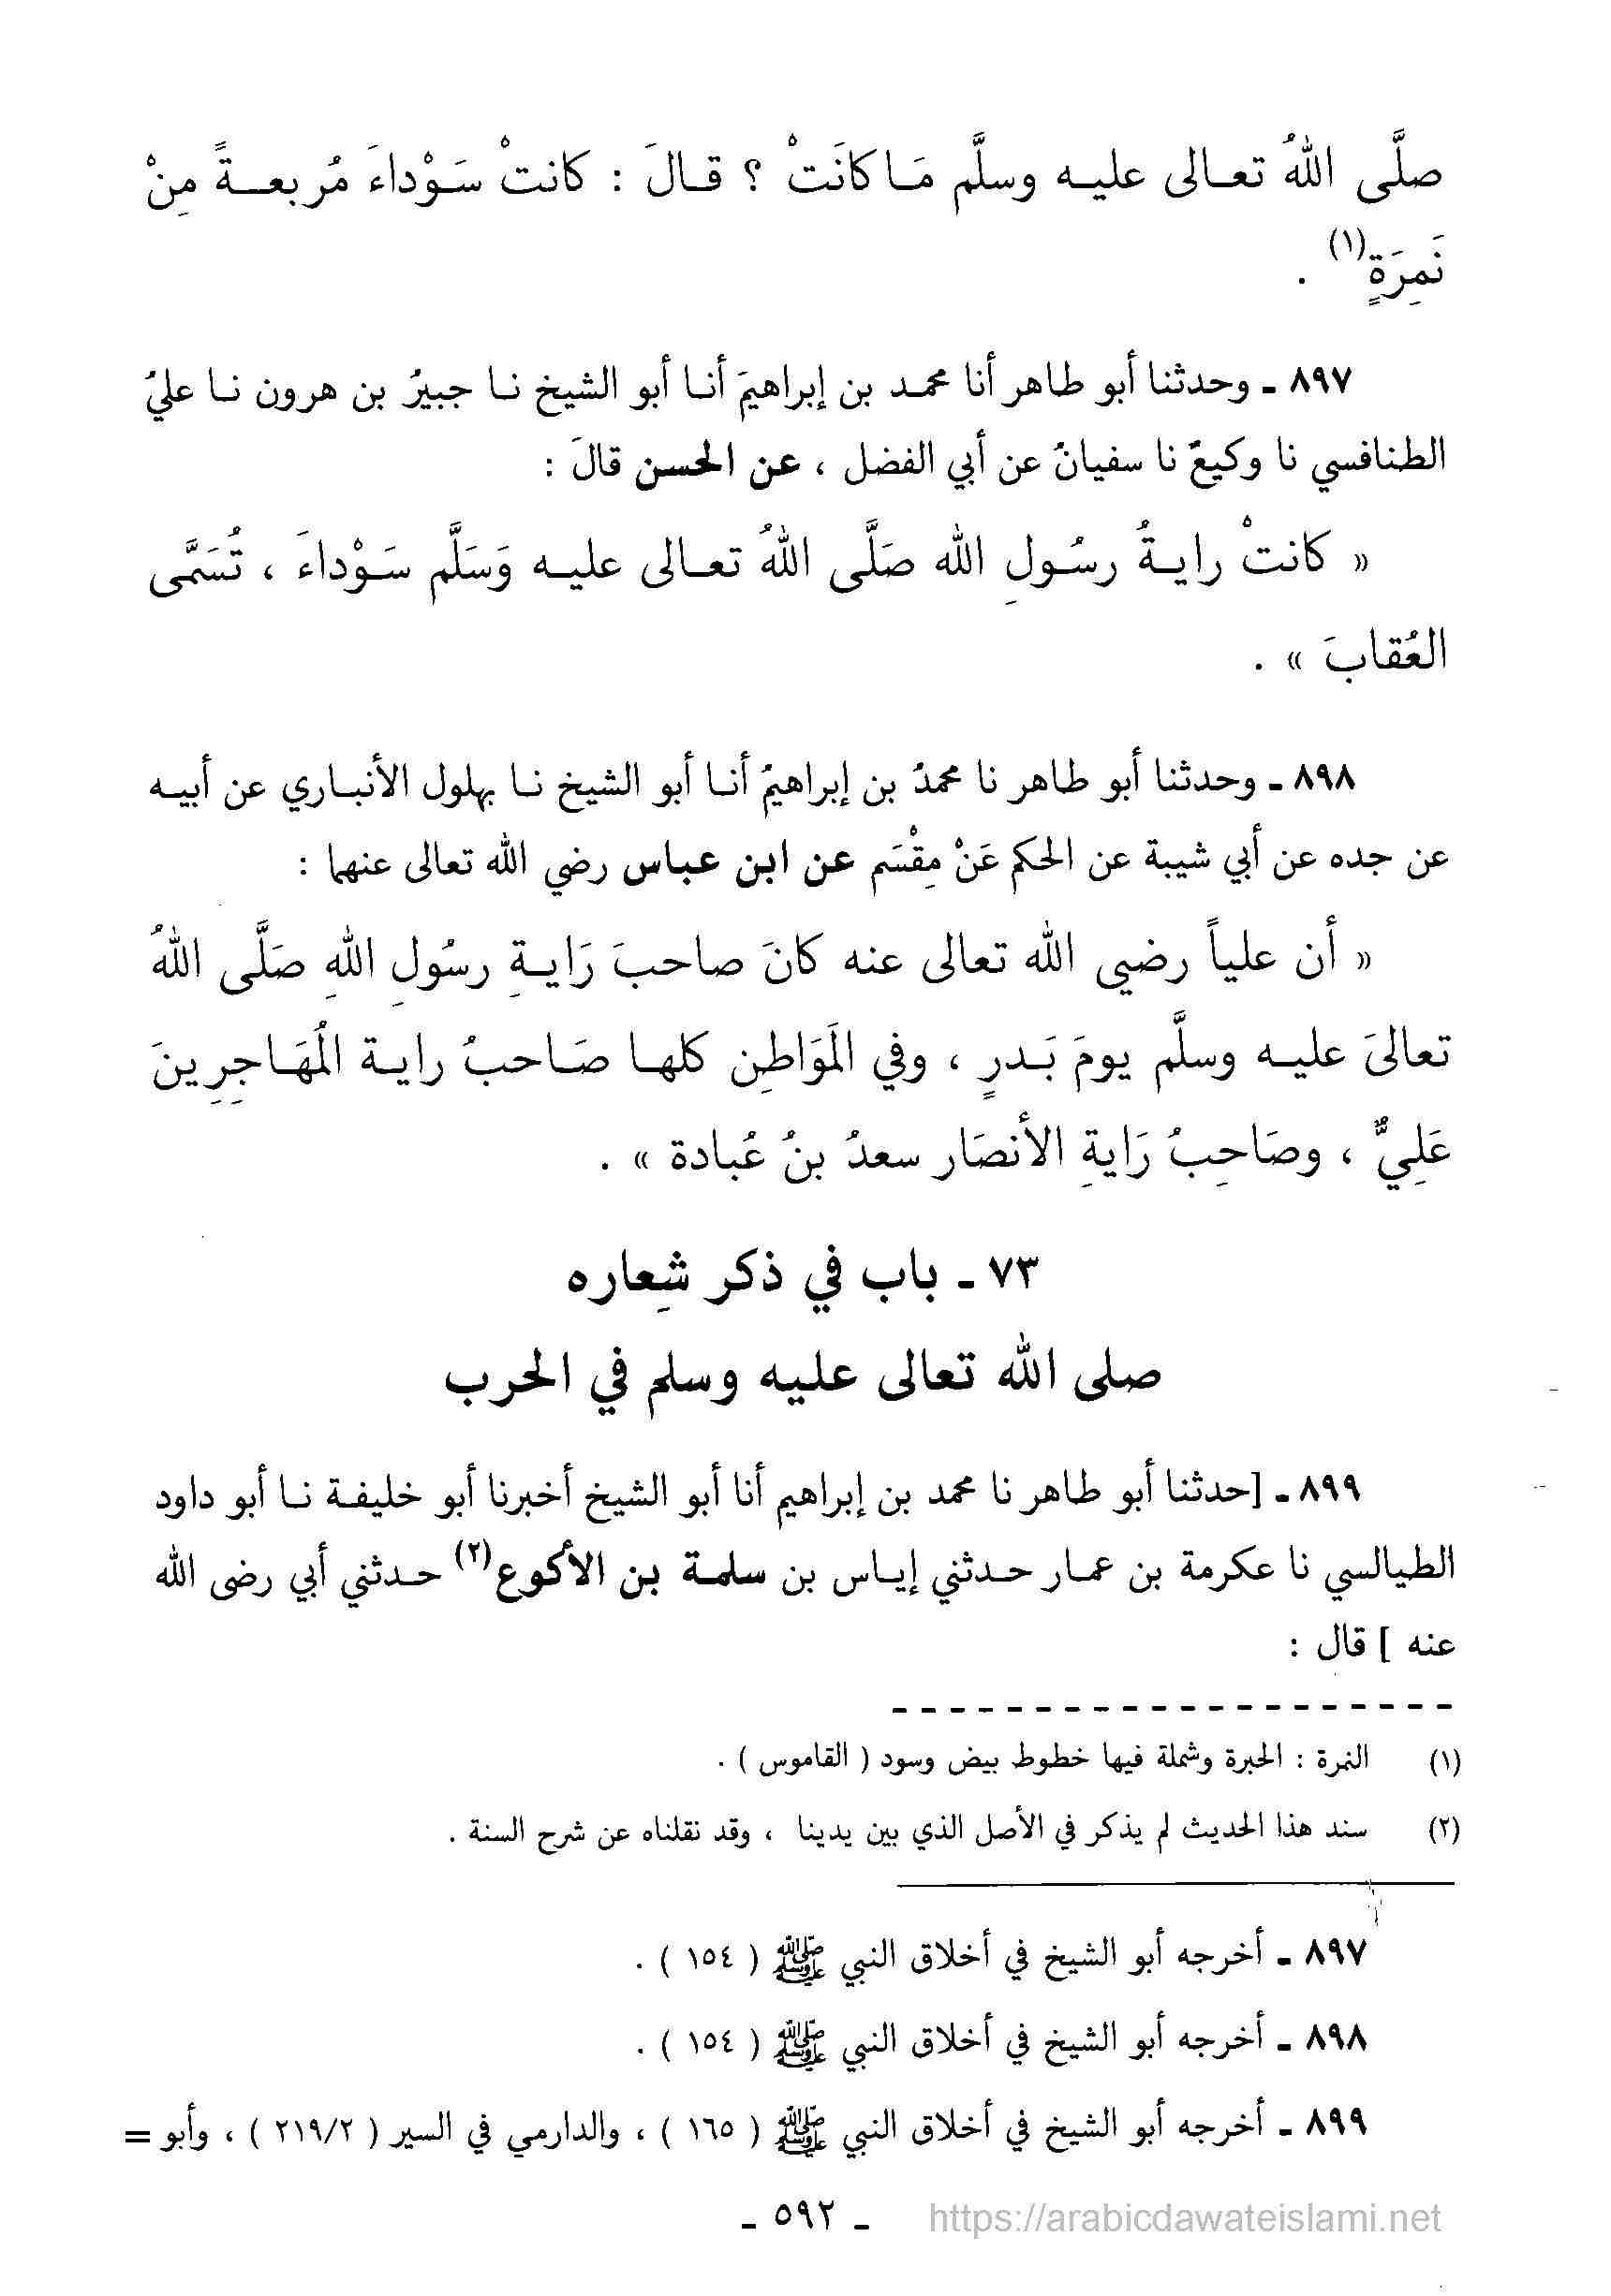 صلَّى اللهُ تعالى عليه وسلَّم مَا كانَتْ ؟ قالَ : كانتْ سَوْداءَ مُربعةً مِنْ
نَمِرَةٍ(١) .
٨٩٧ ـ وحدثنا أبو طاهر أنا محمد بن إبراهيمَ أنا أبو الشيخ نا جبيرُ بن هرون نا عليُ
الطنافسي نا وكيعٌ نا سفيانُ عن أبي الفضل ، عن الحسن قالَ :
« كانتْ رايةُ رسُولِ الله صَلَّى اللهُ تعالى عليه وَسَلَّم سَوْداءَ ، تُسَمَّى
العُقابَ » .
٨٩٨ ـ وحدثنا أبو طاهر نا محمدُ بن إبراهيمُ أنا أبو الشيخ نا بهلول الأنباري عن أبيه
عن جده عن أبي شيبة عن الحكم عَنْ مِقْسَم عن ابن عباس رضي الله تعالى عنهما :
« أن علياً رضي الله تعالى عنه كانَ صاحبَ رَايةِ رسُولِ اللهِ صَلَّى اللهُ
تعالىَ عليه وسلَّم يومَ بَدرٍ ، وفي المَوَاطِن كلها صَاحبُ راية المُهَاجِرِينَ
عَلِيٌّ ، وصَاحِبُ رَايةِ الأنصَار سعدُ بنُ عُبادة » .
٧٣ ـ باب في ذكر شِعاره
صلى الله تعالى عليه وسلم في الحرب
٨٩٩ ـ [حدثنا أبو طاهر نا محمد بن إبراهيم أنا أبو الشيخ أخبرنا أبو خليفة نا أبو داود
الطيالسي نا عكرمة بن عمار حدثني إياس بن سلمة بن الأكوع(٢) حدثني أبي رضى الله
عنه ] قال :
(١) النمرة : الحبرة وشملة فيها خطوط بيض وسود ( القاموس ) .
(٢) سند هذا الحديث لم يذكر في الأصل الذي بين يدينا ، وقد نقلناه عن شرح السنة .
٨٩٧ ـ أخرجه أبو الشيخ في أخلاق النبي ﷺ ( ١٥٤ ) .
٨٩٨ ـ أخرجه أبو الشيخ في أخلاق النبي ﷺ ( ١٥٤ ) .
٨٩٩ ـ أخرجه أبو الشيخ في أخلاق النبي ﷺ ( ١٦٥ ) ، والدارمي في السير ( ٢١٩/٢ ) ، وأبو =
ـ ٥٩٢ ـ
https://arabicdawateislami.net